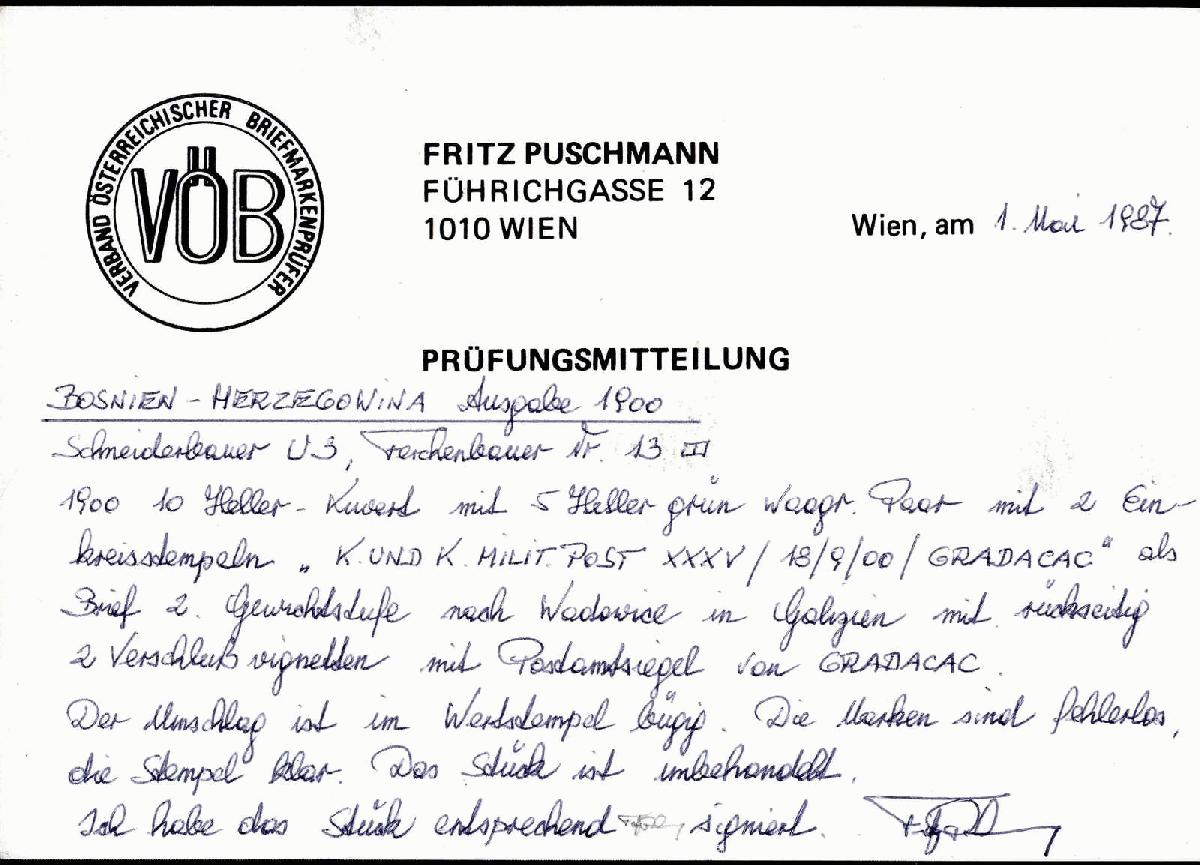 VERBAND ÖSTERREICHISCHER BRIEFMARKENPRÜFER
VÖB
FRITZ PUSCHMANN
FÜHRICHGASSE 12
1010 WIEN
Wien, am 1. Mai 1987.
PRÜFUNGSMITTEILUNG
BOSNIEN - HERZEGOWINA Ausgabe 1900
Schneiderbauer U3, Ferchenbauer Nr. 13 III
1900 10 Heller - Kuvert mit 5 Heller grün waagr. Paar mit 2 Ein-
kreisstempeln „K. UND K. MILIT. POST XXXV / 18/9/00 / GRADACAC" als
Brief 2. Gewichtsstufe nach Wadowice in Galizien mit rückseitig
2 Verschlußvignetten mit Postamtsiegel von GRADACAC.
Der Umschlag ist im Wertstempel bügig. Die Marken sind fehlerlos,
die Stempel klar. Das Stück ist unbehandelt.
Ich habe das Stück entsprechend signiert.